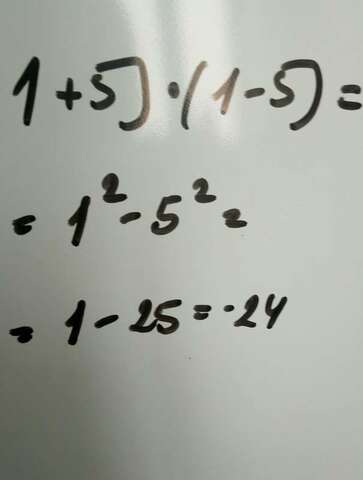 1+5)·(1-5)=
= 1² - 5² =
= 1 - 25 = -24